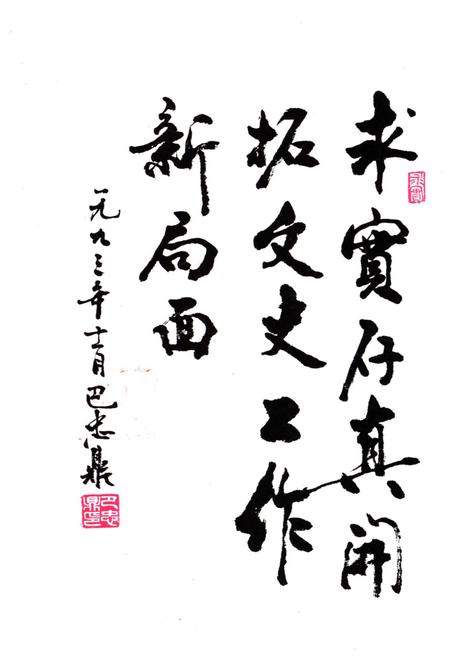 求實存真開
拓文史工作
新局面
一九九三年十二月巴忠鼎
巴忠鼎印